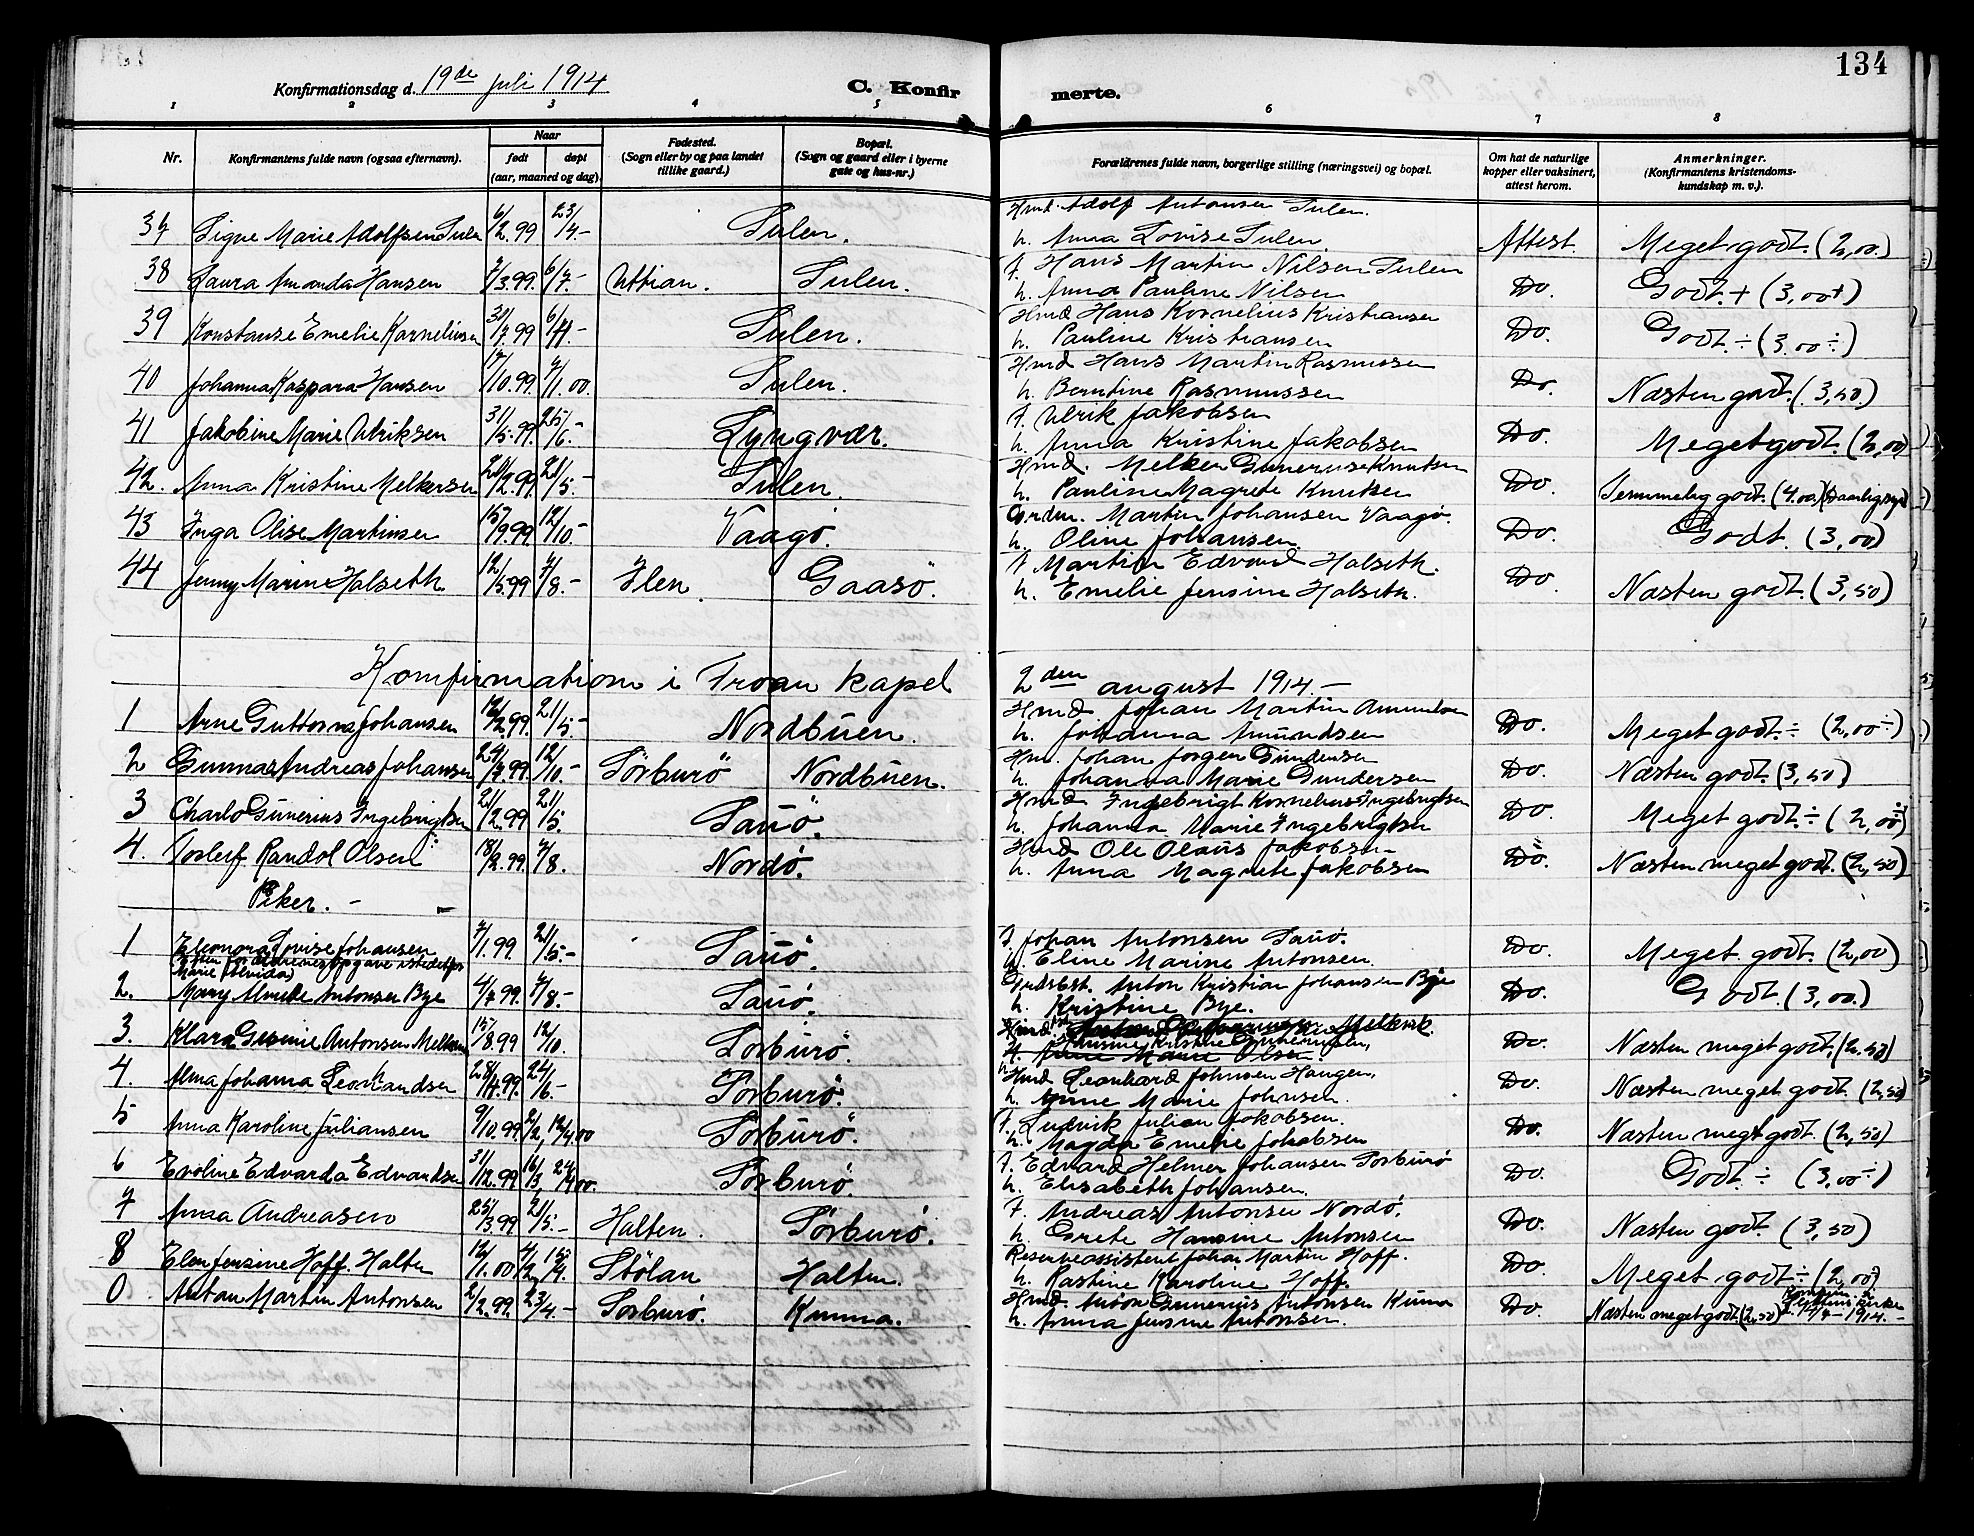 134
Konfirmationsdag d. 19de juli 1914
C. Konfir merte.
1 2 3 4 5 6 7 8
Nr. Konfirmantens fulde navn (ogsaa efternavn). Naar født døpt (aar, maaned og dag). Fødested. (Sogn eller by og paa landet tillike gaard.) Bopæl. (Sogn og gaard eller i byerne gate og hus-nr.) Forældrenes fulde navn, borgerlige stilling (næringsvei) og bopæl. Om hat de naturlige kopper eller vaksinert, attest herom. Anmerkninger. (Konfirmantens kristendoms-kundskap m. v.).
37 Signe Marie Adolfsen Sulen 6/2.99 23/4.- Sulen. Hmd. Adolf Antonsen Sulen.
h. Anna Lovise Sulen. Attest. Meget godt. (2,00.)
38 Laura Amanda Hansen 7/3.99. 6/7.- Uttian. Sulen. f. Hans Martin Nilsen Sulen
h. Anna Pauline Nilsen Do. Godt.+ (3,00+)
39 Konstanse Emelie Kornelius​en 31/7.99 6/11.- Sulen. Hmd Hans Kornelius Kristiansen
h. Pauline Kristiansen Do. Godt.÷ (3.00÷)
40 Johanna Kaspara Hansen 17/10.99. 7/1.00. Sulen. Hmd Hans Martin Rasmussen
h. Berntine Rasmussen Do. Næsten godt (3,50)
41 Jakobine Marie Ulriksen 31/5.99. 25/6.- Lyngvær. f. Ulrik Jakobsen
h. Anna Kristine Jakobsen Do. Meget godt. (2,00)
42. Anna Kristine Melkersen 21/2.99. 21/5.- Sulen. Hmd. Melker Gunerius Knutsen
h. Pauline Magrete Knutsen Do. Temmelig godt. (4.00)
43 Inga Olise Martinsen 15/9.99. 12/10.- Vaagö. Grdm. Martin Johansen Vaagö.
h. Oline Johansen Do. Godt. (3,00)
44 Jenny Marine Halseth. 12/5.99 7/8.- Ilen. Gaasö. f Martin Edvard Halseth.
h. Emelie Jensine Halseth. Do. Næsten godt. (3,50)
Konfirmation i Froan kapel 2den august 1914.-
1 Arne Guttorm Johansen 12/2.99. 21/5.- Nordbuen. Hmd Johan Martin Amundsen
h. Johanna Amundsen Do. Meget godt.÷ (2,00÷)
2 Gunnar Andreas Johansen 24/7.99. 12/10.- Sörburö Nordbuen. Hm. Johan Jörgen Gundersen
h. Johanna Marie Gundersen Do. Næsten godt. (3,50)
3 Charlo Gunerius Ingebrigtsen 21/2.99 21/5. Sauö. Hmd Ingebrigt Kornelius Ingebrigtsen
h. Johanna Marie Ingebrigtsen Do. Meget godt.÷ (2,00÷)
4. Torleif Randol Olsen 18/2.99. 7/8. Nordö. Hmd Ole Olaus Jakobsen
h. Anna Magrete Jakobsen Do. Næsten meget godt. (2,50)
Piker. -
1 Eleonora Lovise Johansen 7/1.99 21/5.- Sauö. f. Johan Antonsen Sauö.
(Efter forældrenes opgave istedetfor Marie Alvida) h. Eline Marine Antonsen. Do. Meget godt. (2,00)
2. Mary Alvide Antonsen Bye 4/7.99. 7/8.- Sauö. Grdsbst. Anton Kristian Johansen Bye
h. Kristine Bye. Do. Godt. (3,00.)
3. Klara Gusine Antonsen Melken 15/8.99 12/10. Sörburö. Hmd. Melkvik.
Do. Næsten meget godt. (2.50)
4. Alma Johanna Leonhardsen 28/4.99. 24/6.- Sörburö. Hmd Leonhard Johnsen Haugen.
h. Anne Marie Johnsen. Do. Næsten meget godt. (2,50)
5 Anna Karoline Juliansen 9/10.99. 2/2, 12/4 00 Sörburö. f. Ludvik Julian Jakobsen.
h. Magda Emelie Jakobsen Do. Næsten meget godt. (2,50)
6 Evoline Edvarda Edvardsen 31/12.99 16/3 24/4 00. Sörburö. f. Edvard Helmer Johansen Sörburö
h. Elisabeth Johansen. Do. Godt.÷ (3,00÷)
7 Anna Andreasen 25/3.99 21/5.- Halten. Sörburö. f. Andreas Antonsen Nordö.
h. Grete Hansine Antonsen Do. Næsten godt. (3,50)
8 Elen Jensine Hoff. Halten 12/1.00 4/2 15/4. Stölan Halten. Reserveassistent Johan Martin Hoff.
h. Kastine Karoline Hoff. Do. Meget godt÷ (2,00÷)
0 Antan Martin Antonsen 2/2.99. 23/4.- Sörburö. Kunna. Hmd. Anton Gunerius Antonsen Kunna
h. Anna Jensine Antonsen. Do. Næsten meget godt. (2,50) 1914.-